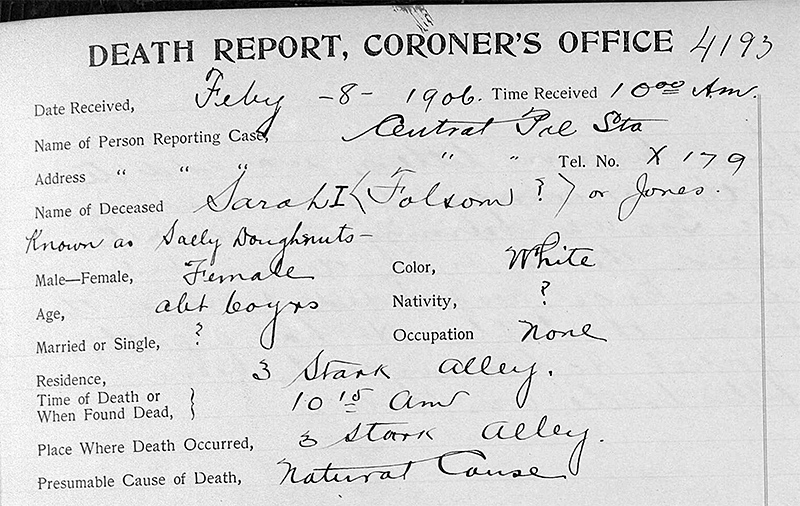 DEATH REPORT, CORONER'S OFFICE 4193
Date Received, Feby -8- 1906. Time Received 10 00 Am.
Name of Person Reporting Case, Central Pol Sta
Address " " " " " Tel. No. X 179
Name of Deceased Sarah I (Folsom ?) or Jones.
Known as Sally Doughnuts -
Male—Female, Female Color, White
Age, abt 60 yrs Nativity, ?
Married or Single, ? Occupation None
Residence, 3 Stark Alley.
Time of Death or
When Found Dead, } 10 15 Am
Place Where Death Occurred, 3 Stark Alley.
Presumable Cause of Death, Natural Cause